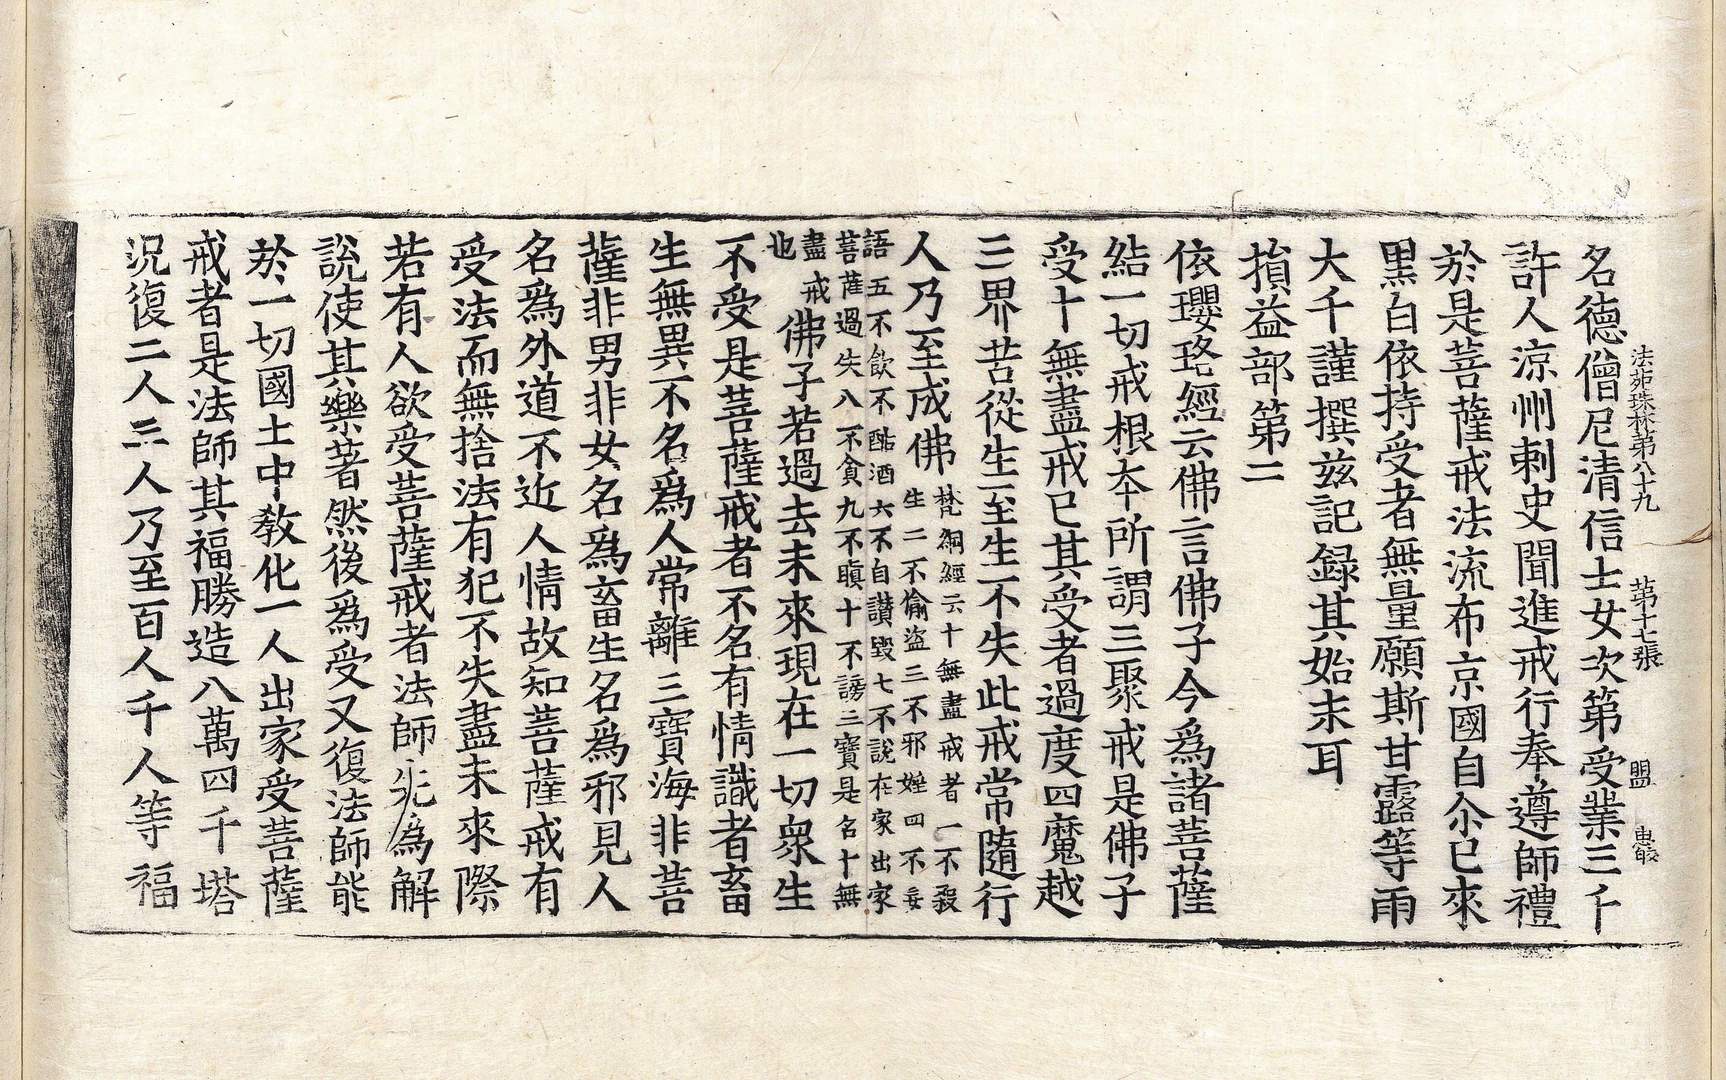 法苑珠林第八十九 第十七張 盟
名德僧尼清信士女次第受業三千
許人涼州刺史聞進戒行奉遵師禮
於是菩薩戒法流布京國自尒已來
黑白依持受者無量願斯甘露等雨
大千謹撰茲記録其始末耳
損益部第二
依瓔珞經云佛言佛子今爲諸菩薩
結一切戒根本所謂三聚戒是佛子
受十無盡戒已其受者過度四魔越
三界苦從生至生不失此戒常隨行
人乃至成佛
梵網經云十無盡戒者一不殺
生二不偷盜三不邪婬四不妄
語五不飲不酤酒六不自讃毀七不說在家出家
菩薩過失八不貪九不瞋十不謗三寶是名十無
盡戒
也
佛子若過去未來現在一切衆生
不受是菩薩戒者不名有情識者畜
生無異不名爲人常離三寶海非菩
薩非男非女名爲畜生名爲邪見人
名爲外道不近人情故知菩薩戒有
受法而無捨法有犯不失盡未來際
若有人欲受菩薩戒者法師先爲解
說使其樂著然後爲受又復法師能
於一切國土中教化一人出家受菩薩
戒者是法師其福勝造八萬四千塔
況復二人三人乃至百人千人等福